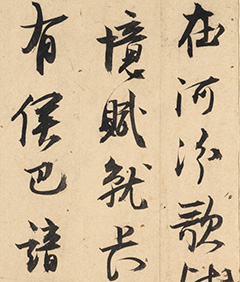 在河汾歌
境賦就長
有侯巴請